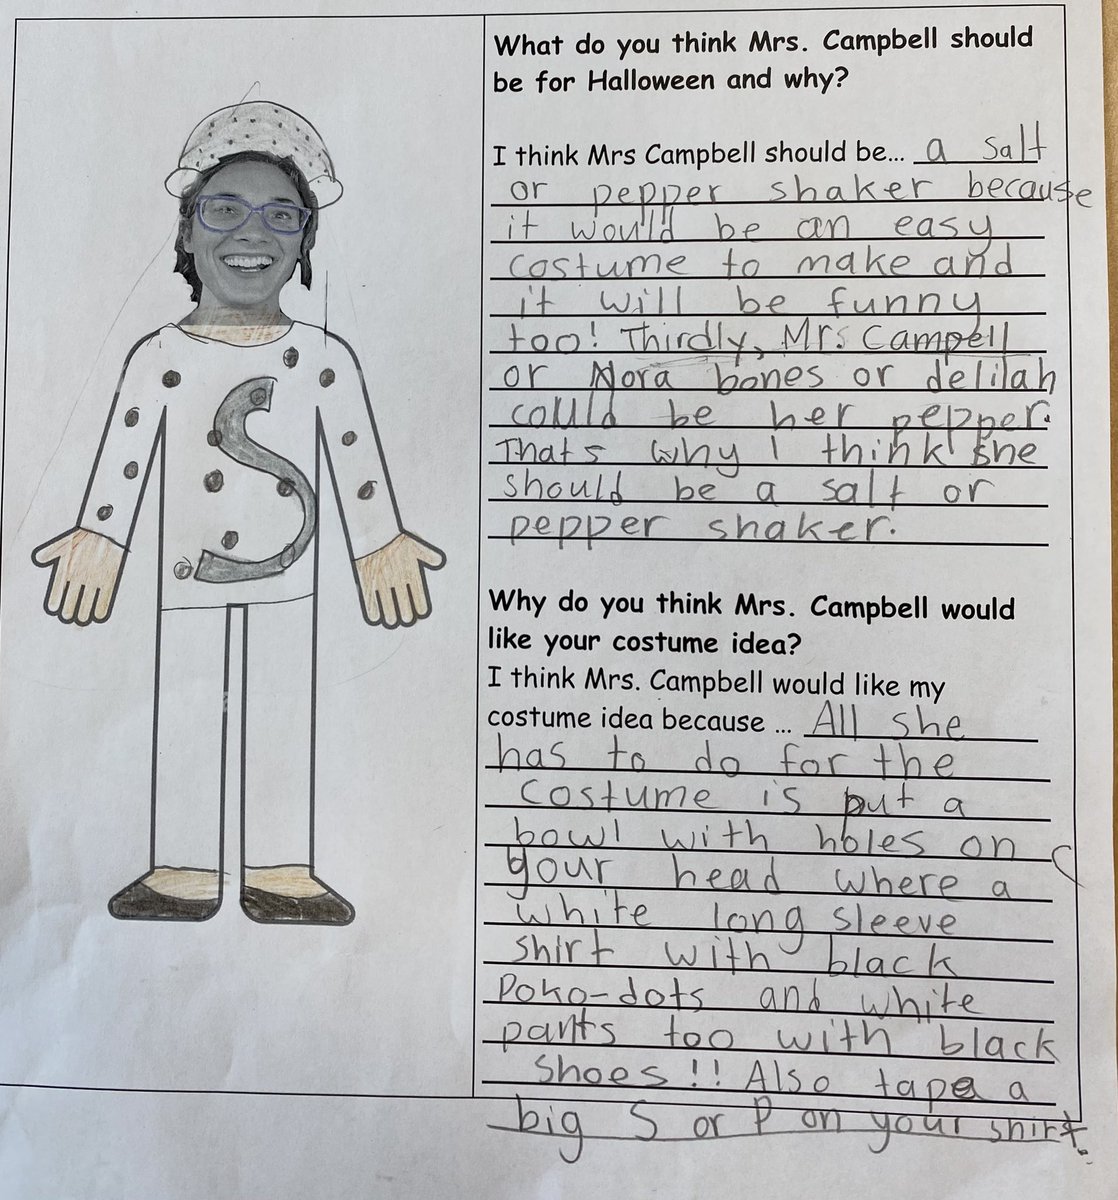 What do you think Mrs. Campbell should
be for Halloween and why?
I think Mrs Campbell should be... a salt
or pepper shaker because
it would be an easy
costume to make and
it will be funny
too! Thirdly, Mrs Campell
or Nora bones or delilah
could be her pepper.
Thats why I think she
should be a salt or
pepper shaker.
Why do you think Mrs. Campbell would
like your costume idea?
I think Mrs. Campbell would like my
costume idea because ... All she
has to do for the
costume is put a
bowl with holes on
your head where a
white long sleeve
shirt with black
Poko-dots and white
pants too with black
shoes!! Also tape a
big S or P on your shirt.
S